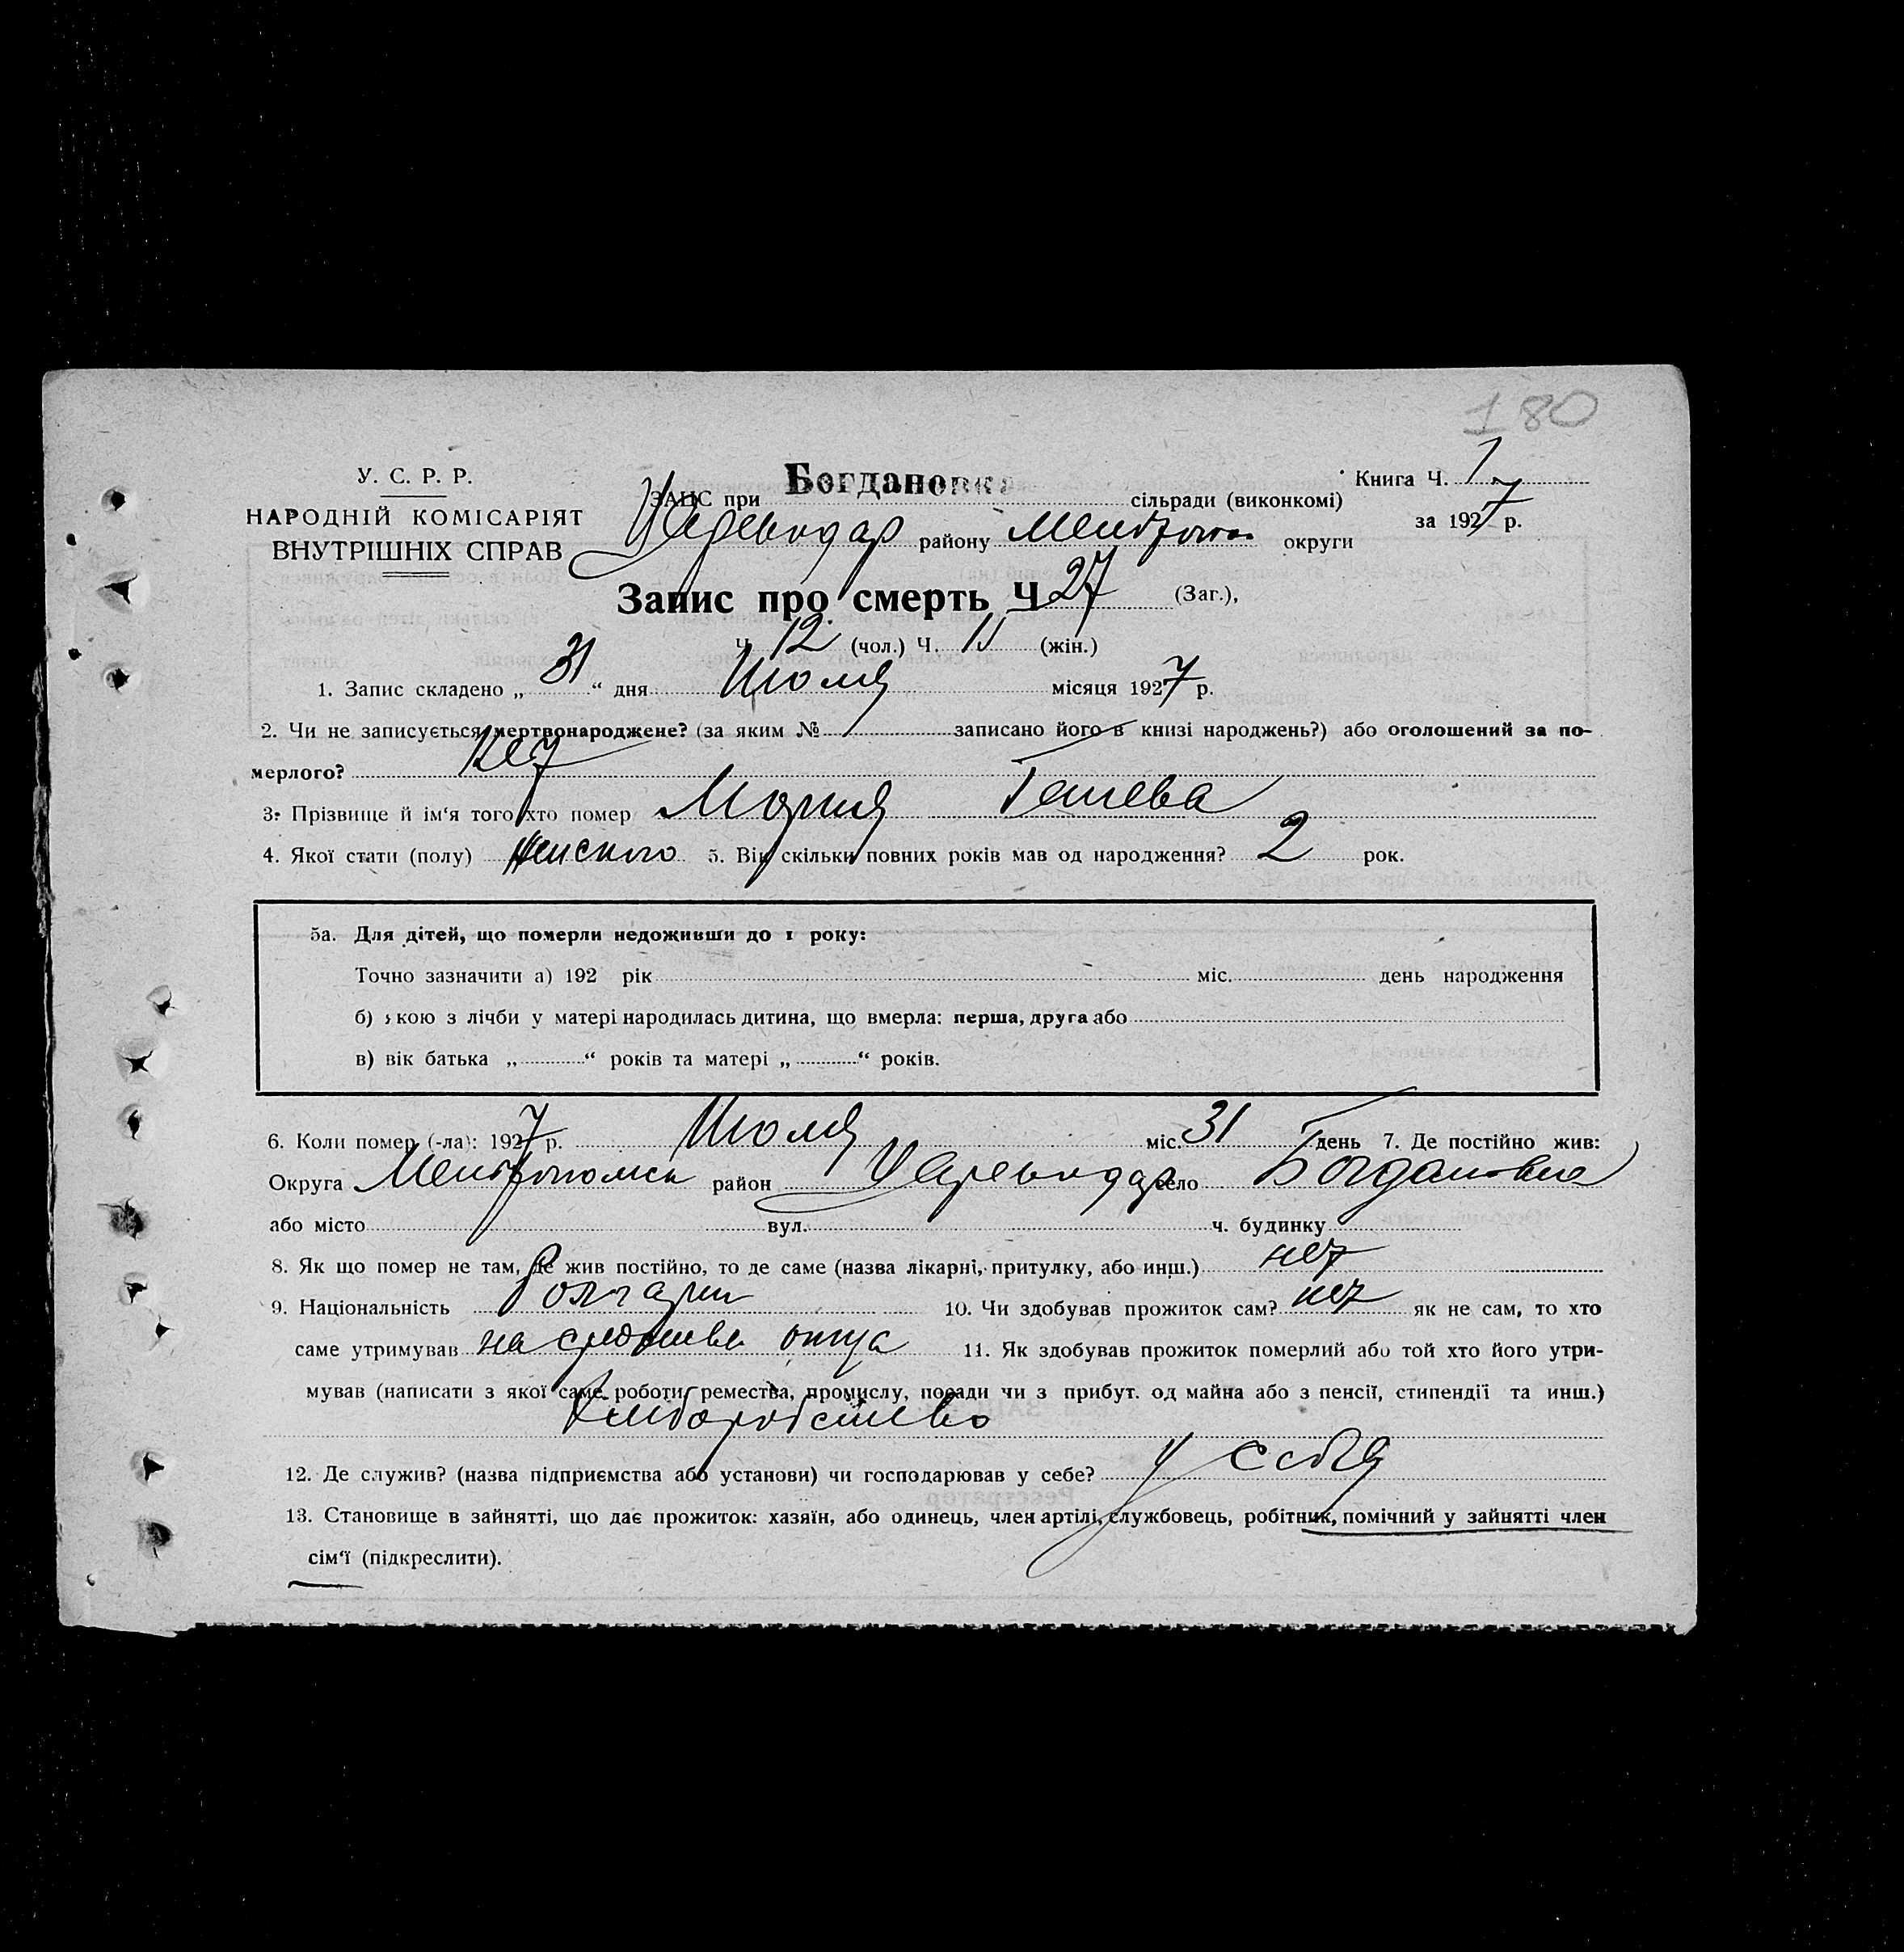 180
У. С. Р. Р.
НАРОДНІЙ КОМІСАРІЯТ
ВНУТРІШНІХ СПРАВ
ЗАГС при Богдановка сільради (виконкомі)
району Мелітопол округи
Книга Ч. 1
за 1927 р.
Запис про смерть Ч 27 (Заг.),
Ч. 12 (чол.) Ч. 11 (жін.)
1. Запис складено „ 31 “ дня Июля місяця 1927 р.
2. Чи не записується мертвонароджене? (за яким № записано його в книзі народжень?) або оголошений за по-
мерлого? нет
3. Прізвище й ім'я того хто помер Мария
4. Якої стати (полу) женского 5. Вік скільки повних років мав од народження? 2 рок.
5а. Для дітей, що померли недоживши до 1 року:
Точно зазначити а) 192 рік міс. день народження
б) якою з лічби у матері народилась дитина, що вмерла: перша, друга або
в) вік батька „ “ років та матері „ “ років.
6. Коли помер (-ла): 1927 р. Июля міс. 31 день 7. Де постійно жив:
Округа район село Богдановка
або місто вул. ч. будинку
8. Як що помер не там, де жив постійно, то де саме (назва лікарні, притулку, або инш.) нет
9. Національність Болгарин 10. Чи здобував прожиток сам? нет як не сам, то хто
саме утримував на средства отца 11. Як здобував прожиток померлий або той хто його утри-
мував (написати з якої саме роботи, ремества, промислу, посади чи з прибут. од майна або з пенсії, стипендії та инш.)
Хлеборобство
12. Де служив? (назва підприємства або установи) чи господарював у себе? у себя
13. Становище в зайнятті, що дає прожиток: хазяїн, або одинець, член артілі, службовець, робітник, помічний у зайнятті член
сім'ї (підкреслити).